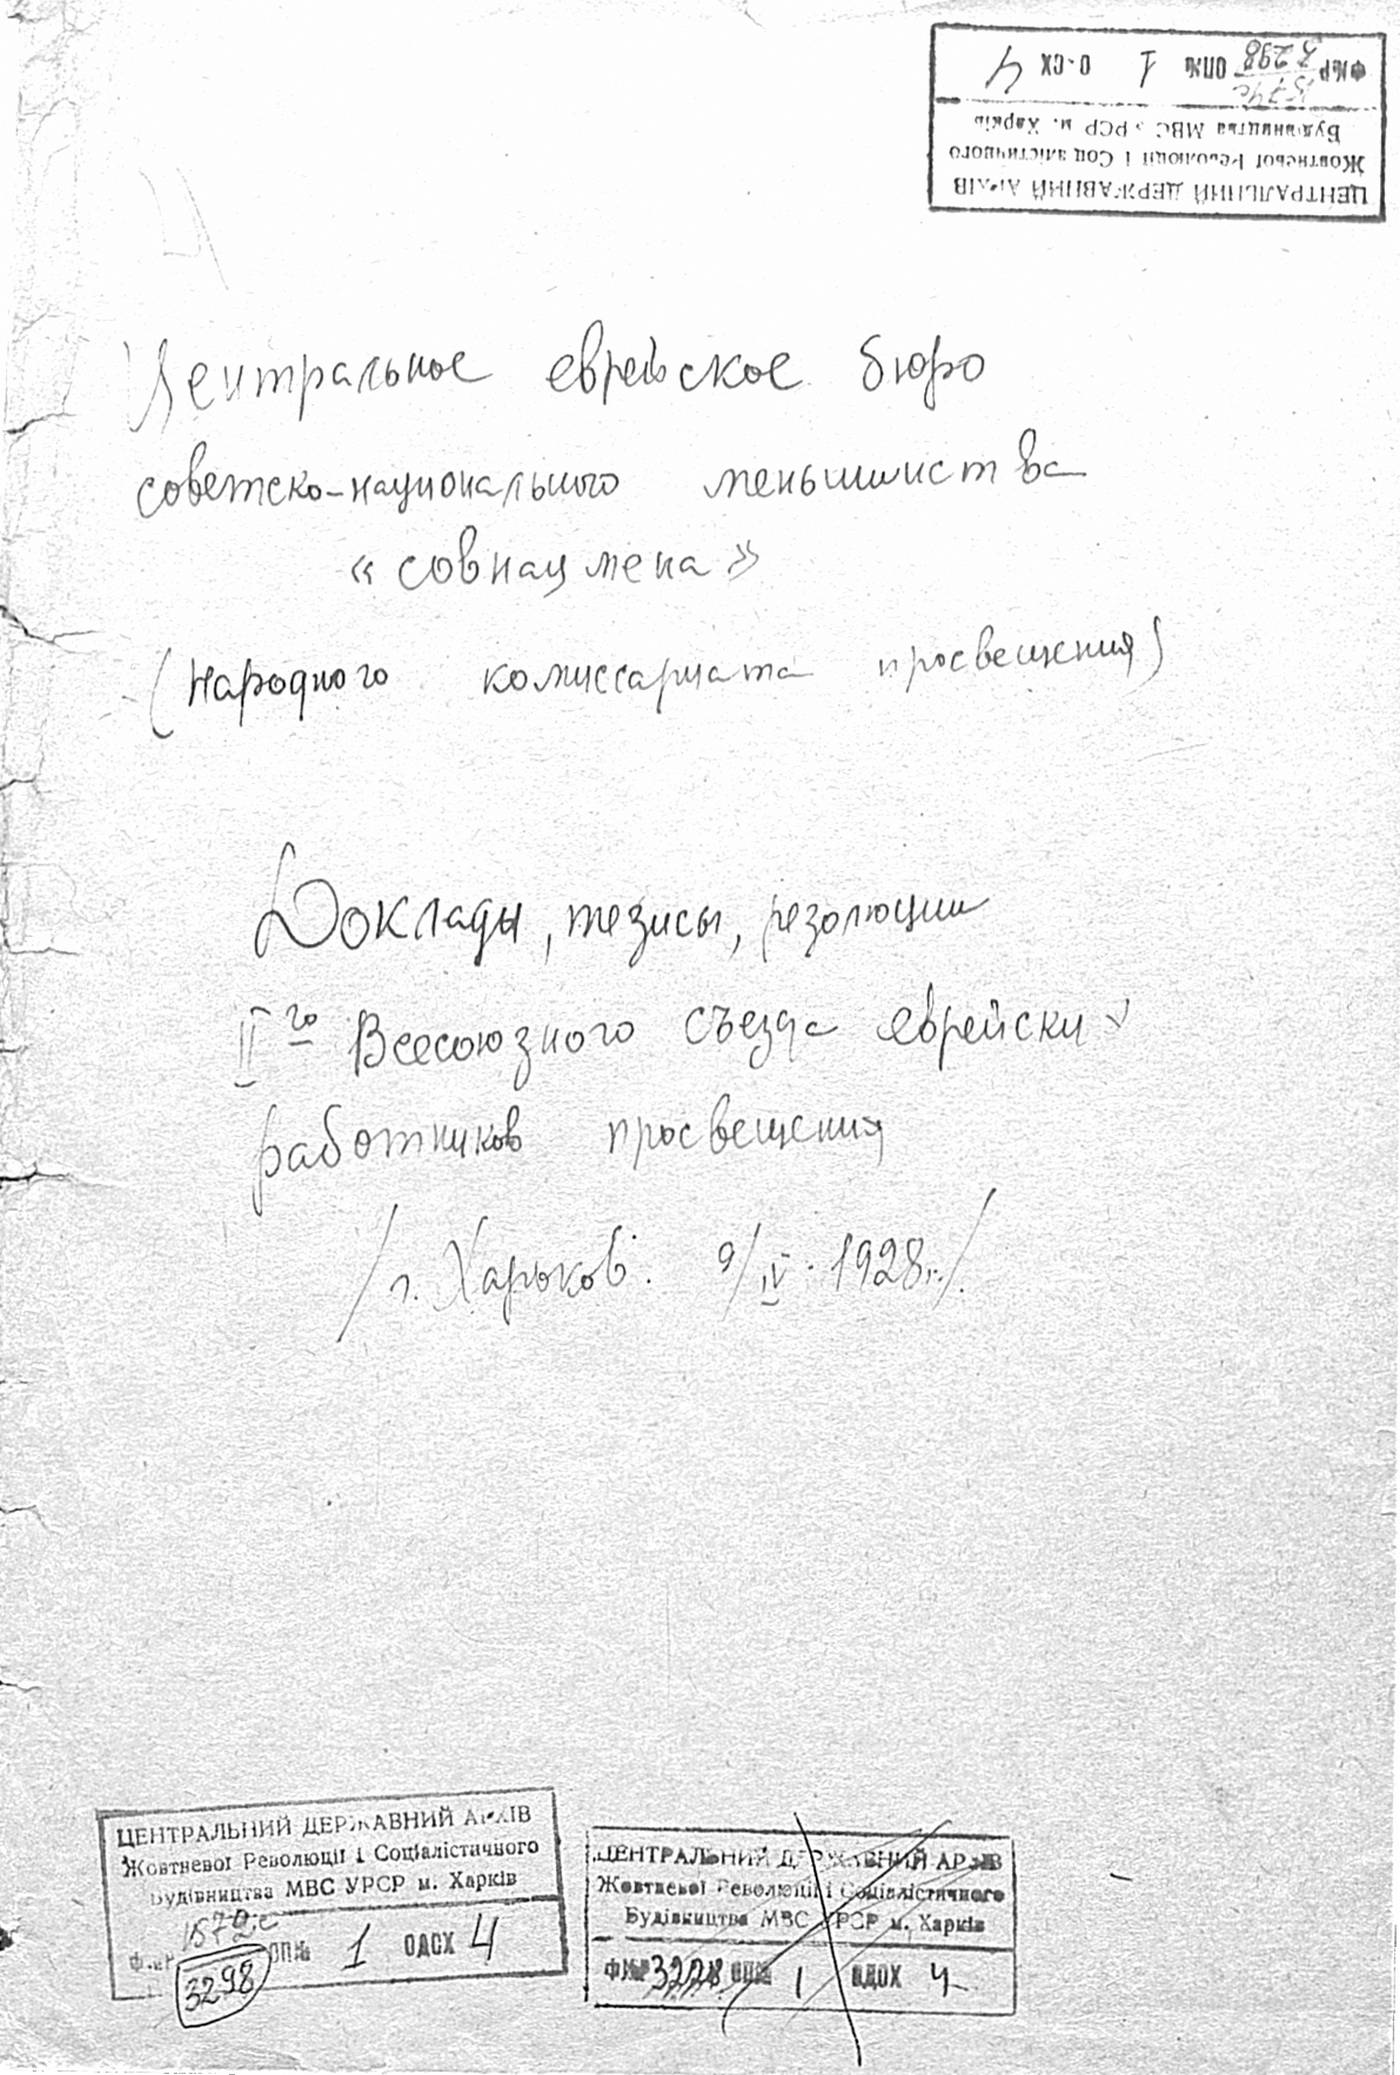 ЦЕНТРАЛЬНИЙ ДЕРЖАВНИЙ АРХІВ
Жовтневої Революції і Соціалістичного
Будівництва МВС УРСР м. Харків
Ф№Р 3298 ОП№ 1 О-СХ 4
Центральное еврейское бюро
советско-национального меньшинства
«совнацмена»
(Народного комиссариата просвещения)
Доклады, тезисы, резолюции
II го Всесоюзного съезда еврейских
работников просвещения
/г. Харьков. 9/IV.1928г./.
ЦЕНТРАЛЬНИЙ ДЕРЖАВНИЙ АРХІВ
Жовтневої Революції і Соціалістичного
Будівництва МВС УРСР м. Харків
Ф.№Р ОП№ 1 ОДСХ 4
3298
ЦЕНТРАЛЬНИЙ ДЕРЖАВНИЙ АРХІВ
Жовтневої Революції і Соціалістичного
Будівництва МВС УРСР м. Харків
Ф№Р ОП№ 1 ОДСХ 4